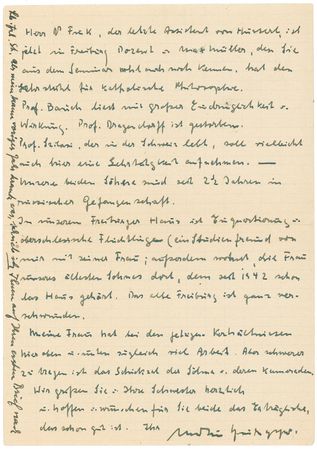 Herr Dr. Fink, der letzte Assistent von Husserl, ist
jetzt in Freiburg Dozent u. Max Müller, den Sie
aus dem Seminar wohl auch noch kennen, hat den
Lehrstuhl für Katholische Philosophie.
Prof. Bauch liest mit großer Eindringlichkeit u.
Wirkung. Prof. Dragendorff ist gestorben.
Prof. Szilasi, der in der Schweiz lebt, soll vielleicht
auch hier eine Lehrtätigkeit aufnehmen. —
Unsere beiden Söhne sind seit 2½ Jahren in
russischer Gefangenschaft.
In unserem Freiburger Haus ist Einquartierung:
oberschlesische Flüchtlinge (ein Studienfreund von
mir mit seiner Frau; außerdem wohnt die Frau
unseres ältesten Sohnes dort, dem seit 1942 schon
das Haus gehört. Das alte Freiburg ist ganz ver-
schwunden.
Meine Frau hat bei den jetzigen Verhältnissen
hier oben u. unten zugleich viel Arbeit. Aber schwerer
zu tragen ist das Schicksal der Söhne u. deren Kameraden.
Wir grüßen Sie u. Ihre Schwester herzlich
u. hoffen u. wünschen für Sie beide das Erträgliche,
das schon gut ist. Ihr
Martin Heidegger.
als mein Mann voriges Jahr Ihnen auf Ihren ersten Brief